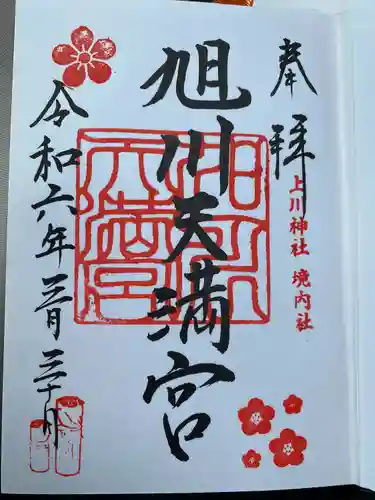 奉拝
上川神社 境内社
旭川天満宮
令和六年三月三十日